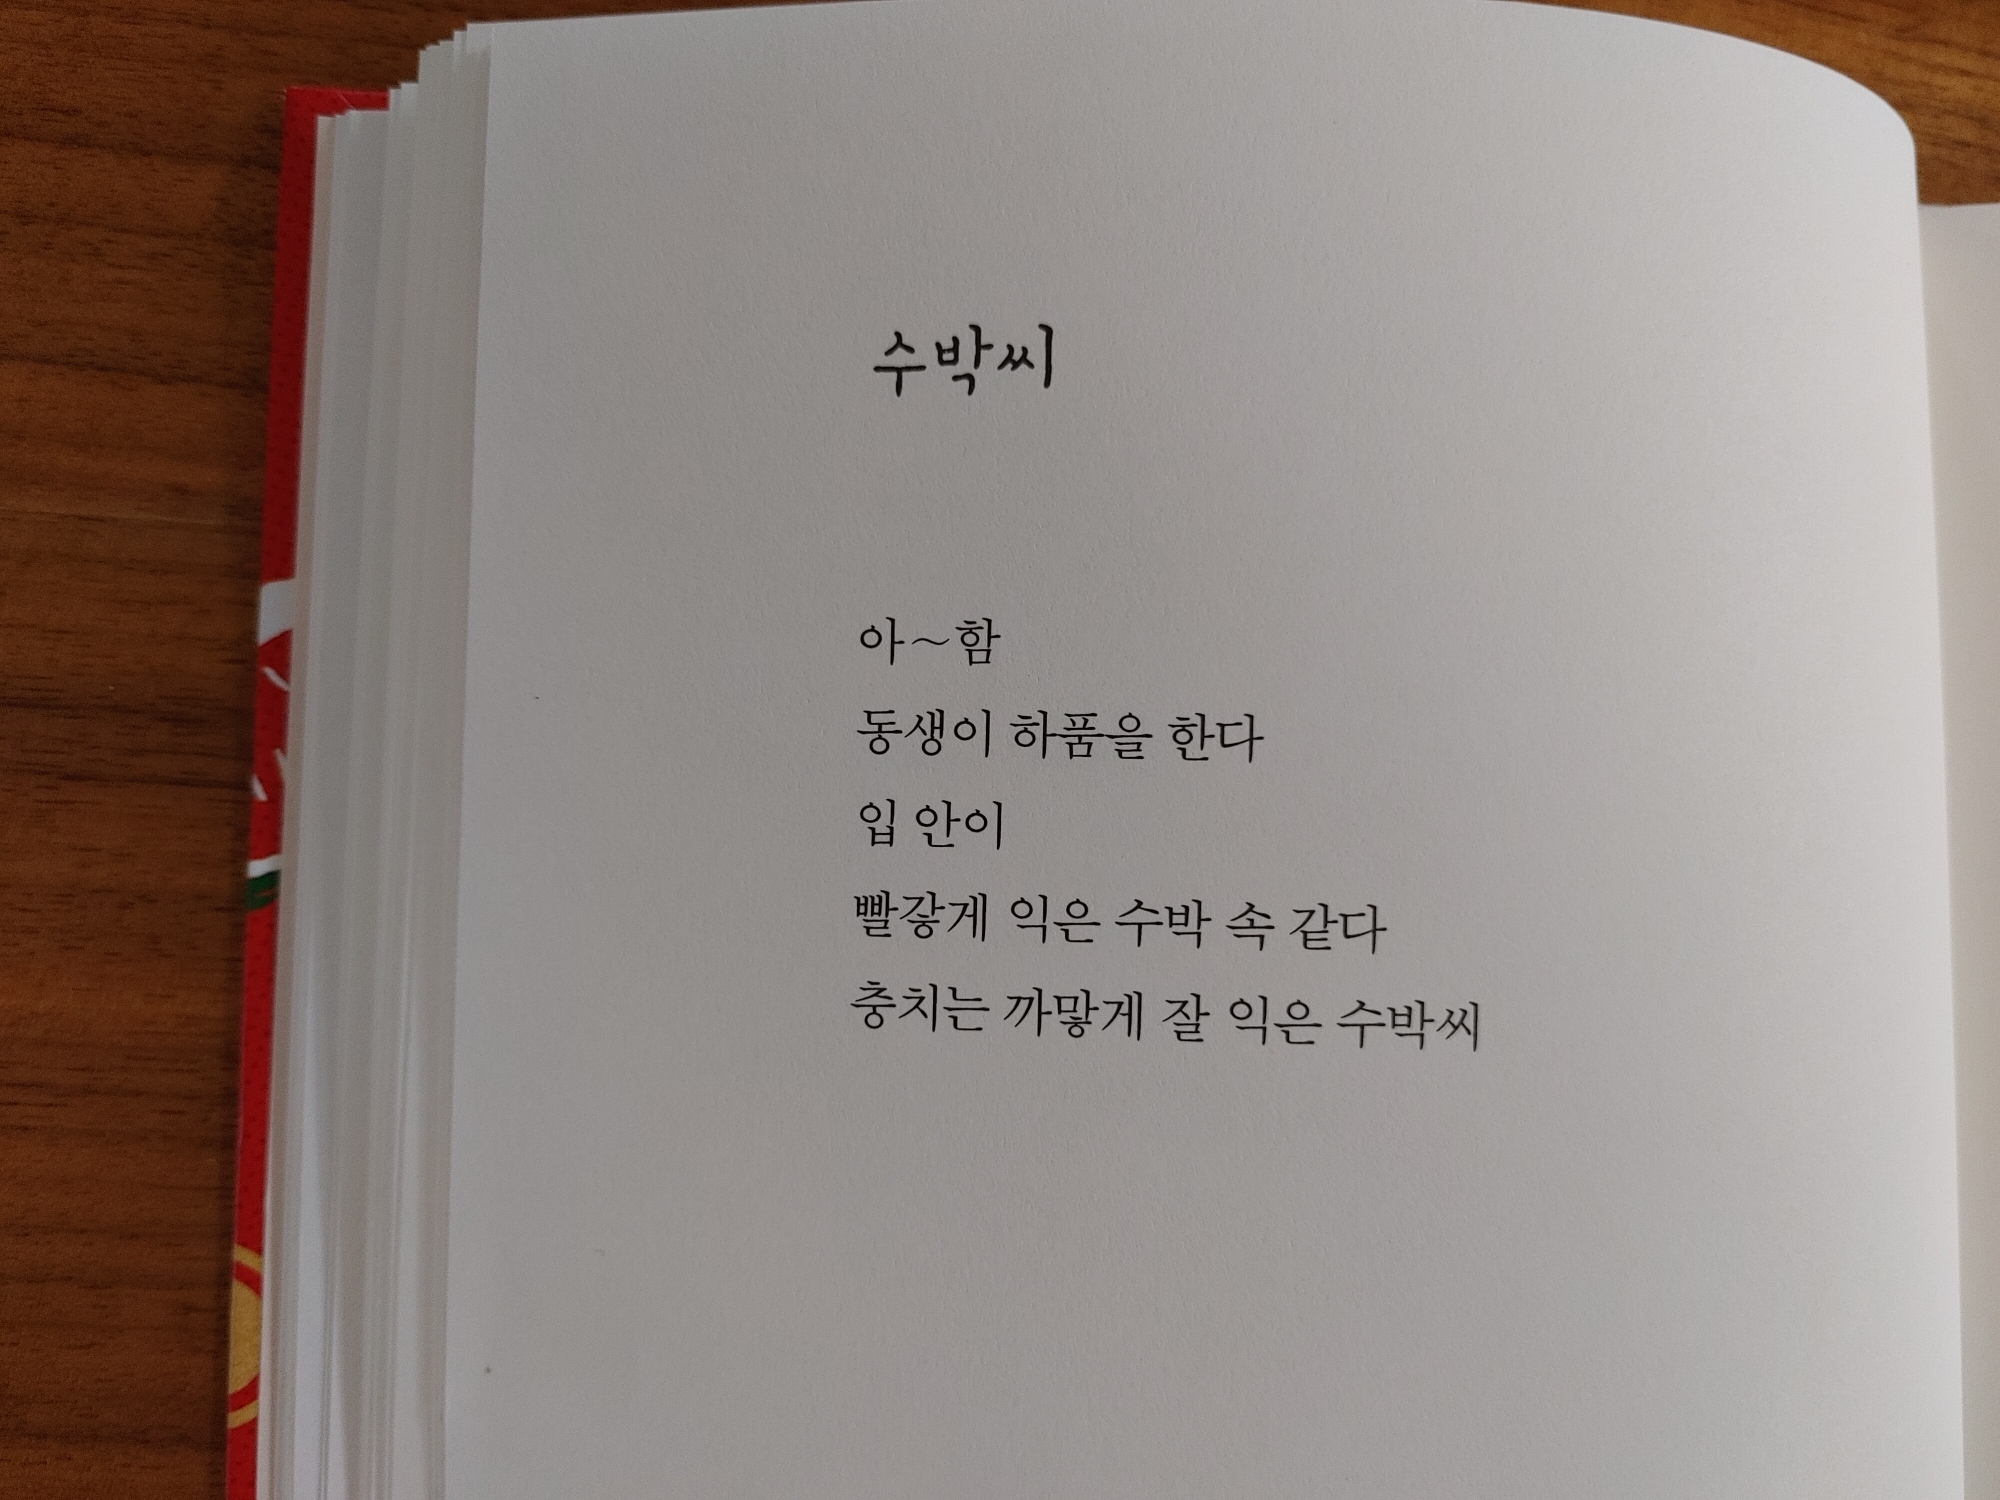 수박씨
아~함
동생이 하품을 한다
입 안이
빨갛게 익은 수박 속 같다
충치는 까맣게 잘 익은 수박씨